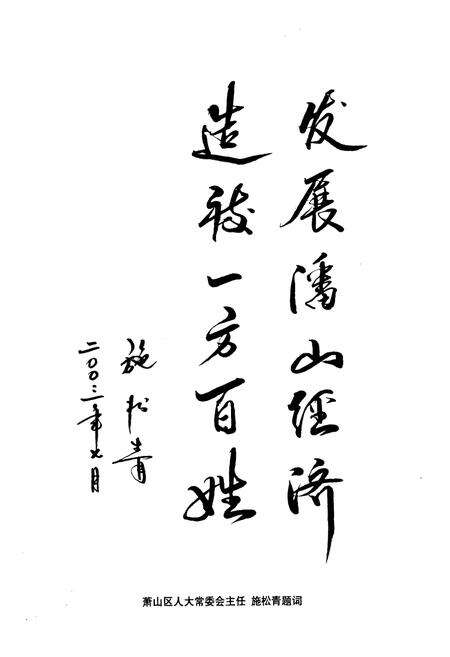 发展潘山經济
造福一方百姓
施松青
二〇〇三年七月
萧山区人大常委会主任 施松青题词